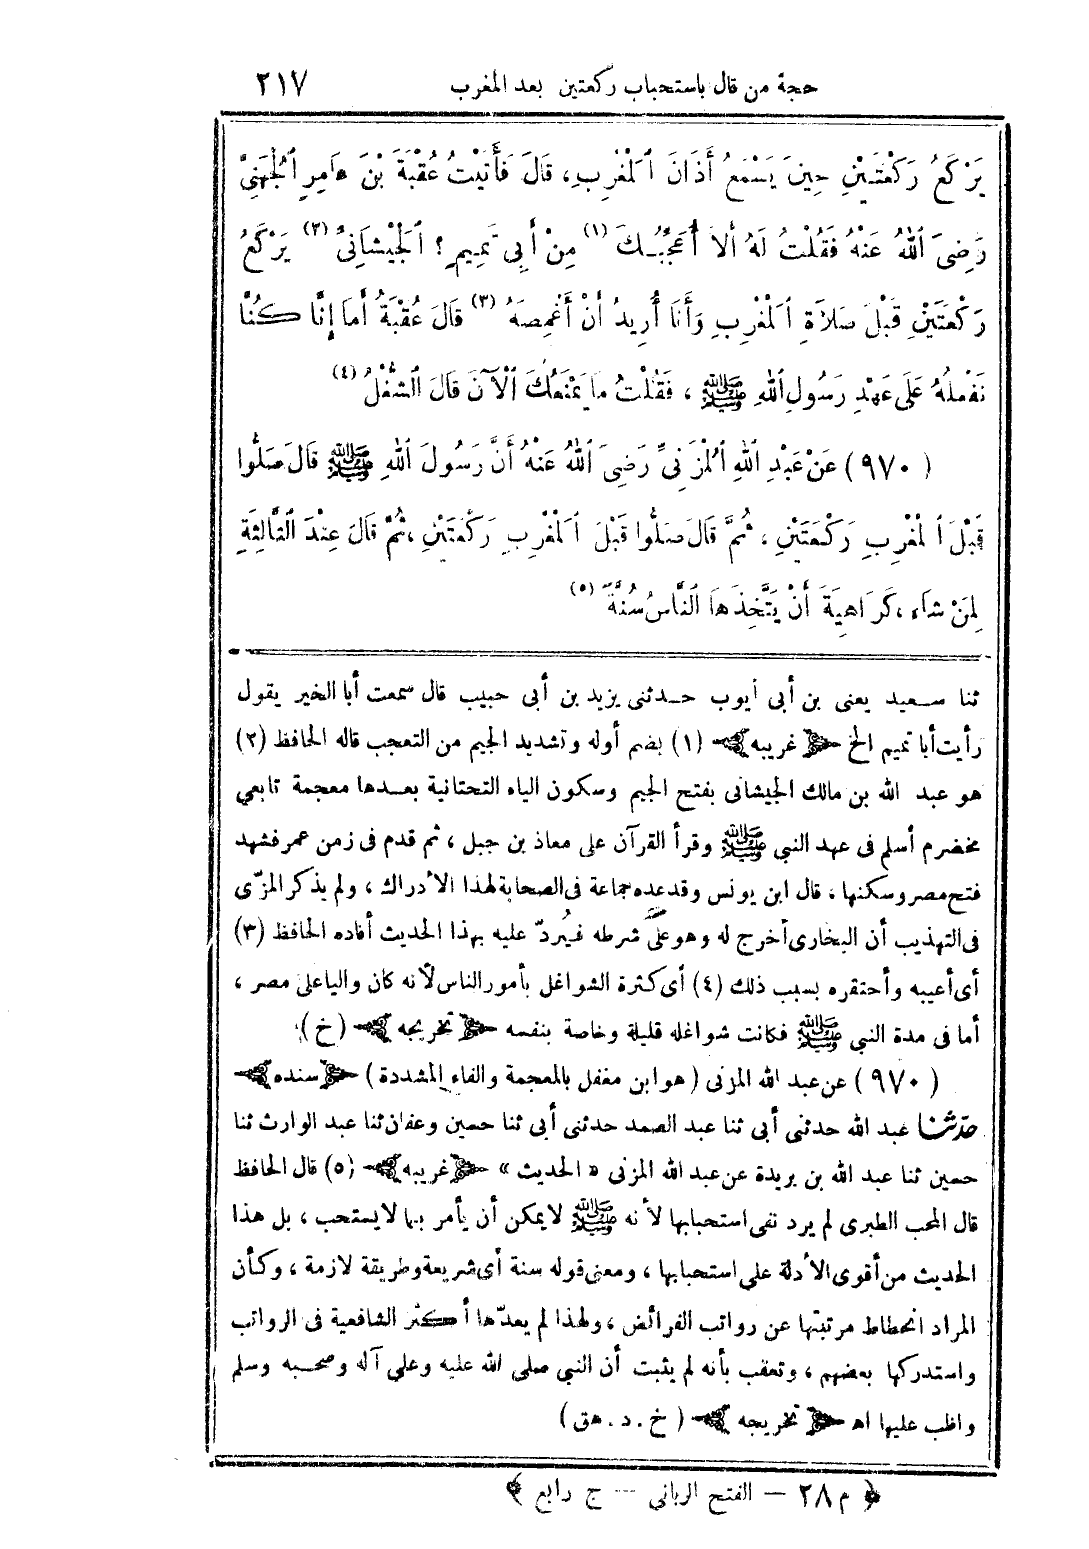 حجة من قال باستحباب ركعتين بعد المغرب ٢١٧
يَرْكَعُ رَكْعَتَيْنِ حِينَ يَسْمَعُ أَذَانَ ٱلْمَغْرِبِ، قَالَ فَأَتَيْتُ عُقْبَةَ بْنَ عَامِرٍ ٱلْجُهَنِيَّ
رَضِيَ ٱللهُ عَنْهُ فَقُلْتُ لَهُ أَلاَ أُعَجِّبُكَ (١) مِنْ أَبِي تَمِيمٍ؟ ٱلْجَيْشَانِيِّ (٢) يَرْكَعُ
رَكْعَتَيْنِ قَبْلَ صَلاَةِ ٱلْمَغْرِبِ وَأَنَا أُرِيدُ أَنْ أَغْمِصَهُ (٣) قَالَ عُقْبَةُ أَمَا إِنَّا كُنَّا
نَفْعَلُهُ عَلَى عَهْدِ رَسُولِ ٱللهِ ﷺ ، فَقُلْتُ مَا يَمْنَعُكَ ٱلْآنَ قَالَ ٱلشُّغْلُ (٤)
(٩٧٠) عَنْ عَبْدِ ٱللهِ ٱلْمُزَنِيِّ رَضِيَ ٱللهُ عَنْهُ أَنَّ رَسُولَ ٱللهِ ﷺ قَالَ صَلُّوا
قَبْلَ ٱلْمَغْرِبِ رَكْعَتَيْنِ ، ثُمَّ قَالَ صَلُّوا قَبْلَ ٱلْمَغْرِبِ رَكْعَتَيْنِ ، ثُمَّ قَالَ عِنْدَ ٱلثَّالِثَةِ
لِمَنْ شَاءَ ، كَرَاهِيَةَ أَنْ يَتَّخِذَهَا ٱلنَّاسُ سُنَّةً (٥)
ثنا سعيد يعنى بن أبى أيوب حدثنى يزيد بن أبى حبيب قال سمعت أبا الخير يقول
رأيت أبا تميم الخ ﴿غريبه﴾ (١) بضم أوله وتشديد الجيم من التعجب قاله الحافظ (٢)
هو عبد الله بن مالك الجيشانى بفتح الجيم وسكون الياء التحتانية بعدها معجمة تابعي
مخضرم أسلم فى عهد النبي ﷺ وقرأ القرآن على معاذ بن جبل ، ثم قدم فى زمن عمر فشهد
فتح مصر وسكنها ، قال ابن يونس وقد عده جماعة فى الصحابة لهذا الأدراك ، ولم يذكر المزّى
فى التهذيب أن البخارى أخرج له وهو على شرطه فيُردّ عليه بهذا الحديث أفاده الحافظ (٣)
أى أعيبه وأحتقره بسبب ذلك (٤) أى كثرة الشواغل بأمور الناس لأنه كان واليا على مصر ،
أما فى مدة النبي ﷺ فكانت شواغله قليلة وخاصة بنفسه ﴿تخريجه﴾ (خ)
(٩٧٠) عن عبد الله المزنى (هو ابن مغفل بالمعجمة والفاء المشددة) ﴿سنده﴾
حدثنا عبد الله حدثنى أبى ثنا عبد الصمد حدثنى أبى ثنا حسين وعفان ثنا عبد الوارث ثنا
حسين ثنا عبد الله بن بريدة عن عبد الله المزنى «الحديث» ﴿غريبه﴾ (٥) قال الحافظ
قال المحب الطبرى لم يرد نفى استحبابها لأنه ﷺ لا يمكن أن يأمر بها لا يستحب ، بل هذا
الحديث من أقوى الأدلة على استحبابها ، ومعنى قوله سنة أى شريعة وطريقة لازمة ، وكأن
المراد انحطاط مرتبتها عن رواتب الفرائض ، ولهذا لم يعدّها أكثر الشافعية فى الرواتب
واستدركها بعضهم ، وتعقب بأنه لم يثبت أن النبي صلى الله عليه وعلى آله وصحبه وسلم
واظب عليها اه ﴿تخريجه﴾ (خ . د . هق)
﴿م ٢٨ – الفتح الربانى – ج رابع﴾